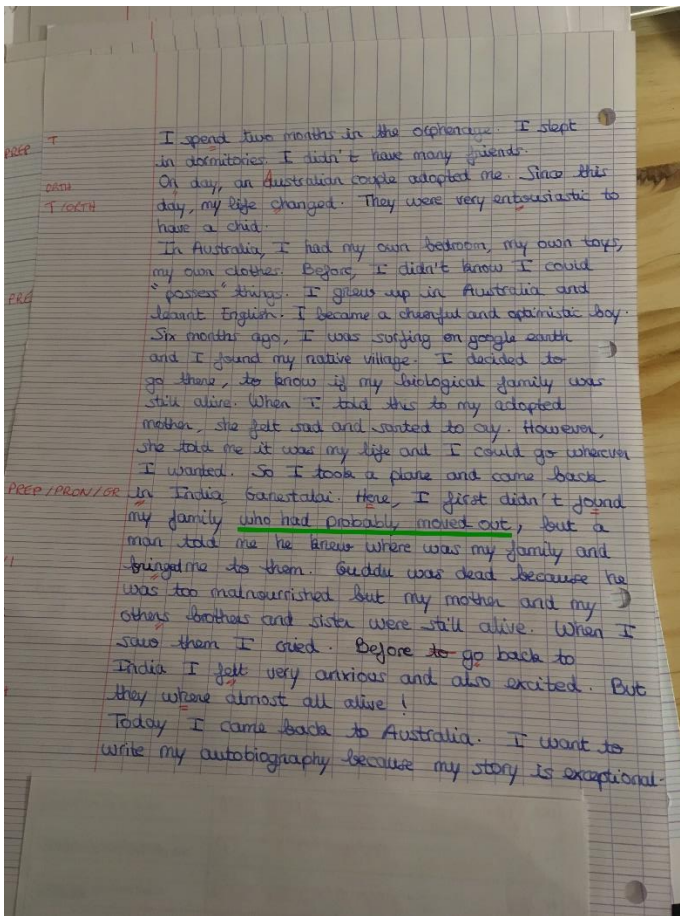 PREP T I spend two months in the orphenage. I slept
in dormitories. I didn't have many friends.
ORTH On day, an Australian couple adopted me. Since this
T/ORTH day, my life changed. They were very entousiastic to
have a chid.
In Australia, I had my own bedroom, my own toys,
my own clothes. Before, I didn't know I could
PRE "possess" things. I grew up in Australia and
learnt English. I became a cheerful and optimistic boy.
Six months ago, I was surfing on google earth
and I found my native village. I decided to
go there, to know if my biological family was
still alive. When I told this to my adopted
mother, she felt sad and wanted to cry. However,
she told me it was my life and I could go wherever
I wanted. So I took a plane and came back
PREP/PRON/GR in India Ganestalai. Here, I first didn't found
my family who had probably moved out, but a
man told me he knew where was my family and
bringed me to them. Guddu was dead because he
was too malnourished but my mother and my
others brothers and sister were still alive. When I
saw them I cried. Before to go back to
India I felt very anxious and also excited. But
they where almost all alive!
Today I came back to Australia. I want to
write my autobiography because my story is exceptional.